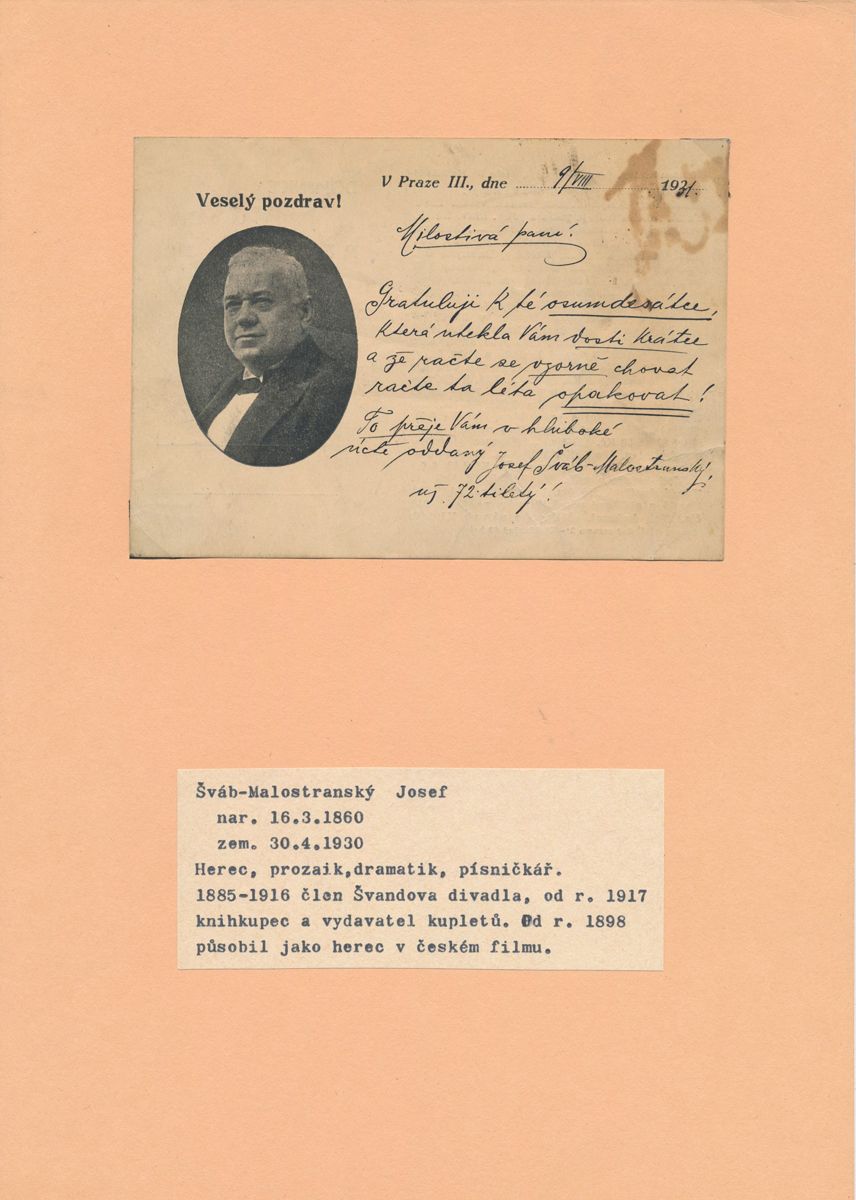 Veselý pozdrav!
V Praze III., dne 9/VIII 1931.
Milostivá paní!
Gratuluji k té osumdesátce,
která utekla Vám dosti krátce
a že račte se vzorně chovat
račte ta léta opakovat!
To přeje Vám v hluboké
úctě oddaný Josef Šváb-Malostranský,
už 72-tiletý!
Šváb-Malostranský Josef
nar. 16.3.1860
zem. 30.4.1930
Herec, prozaik,dramatik, písničkář.
1885-1916 člen Švandova divadla, od r. 1917
knihkupec a vydavatel kupletů. Od r. 1898
působil jako herec v českém filmu.